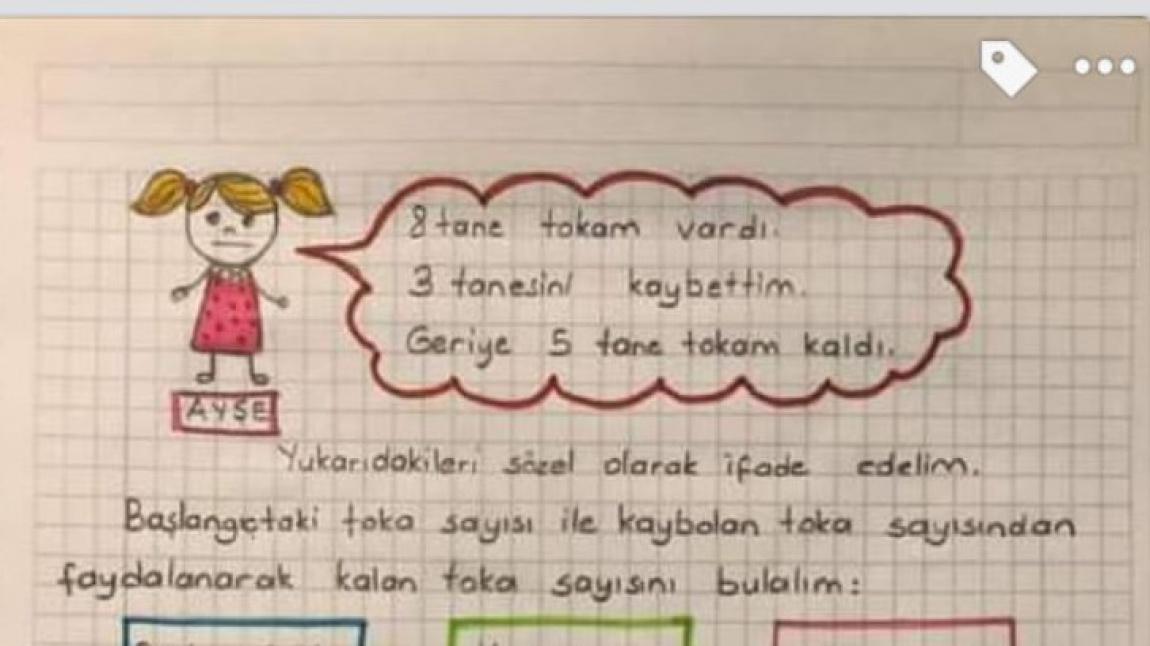 8 tane tokam vardı.
3 tanesini kaybettim.
Geriye 5 tane tokam kaldı.
AYŞE
Yukarıdakileri sözel olarak ifade edelim.
Başlangıçtaki toka sayısı ile kaybolan toka sayısından
faydalanarak kalan toka sayısını bulalım: